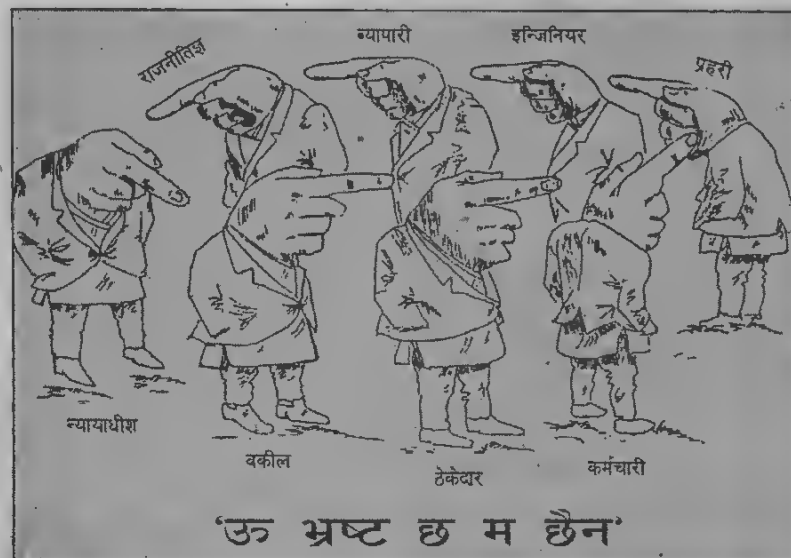 राजनीतिज्ञ
व्यापारी
इन्जिनियर
प्रहरी
न्यायाधीश
वकील
ठेकेदार
कर्मचारी
'ऊ भ्रष्ट छ म छैन'